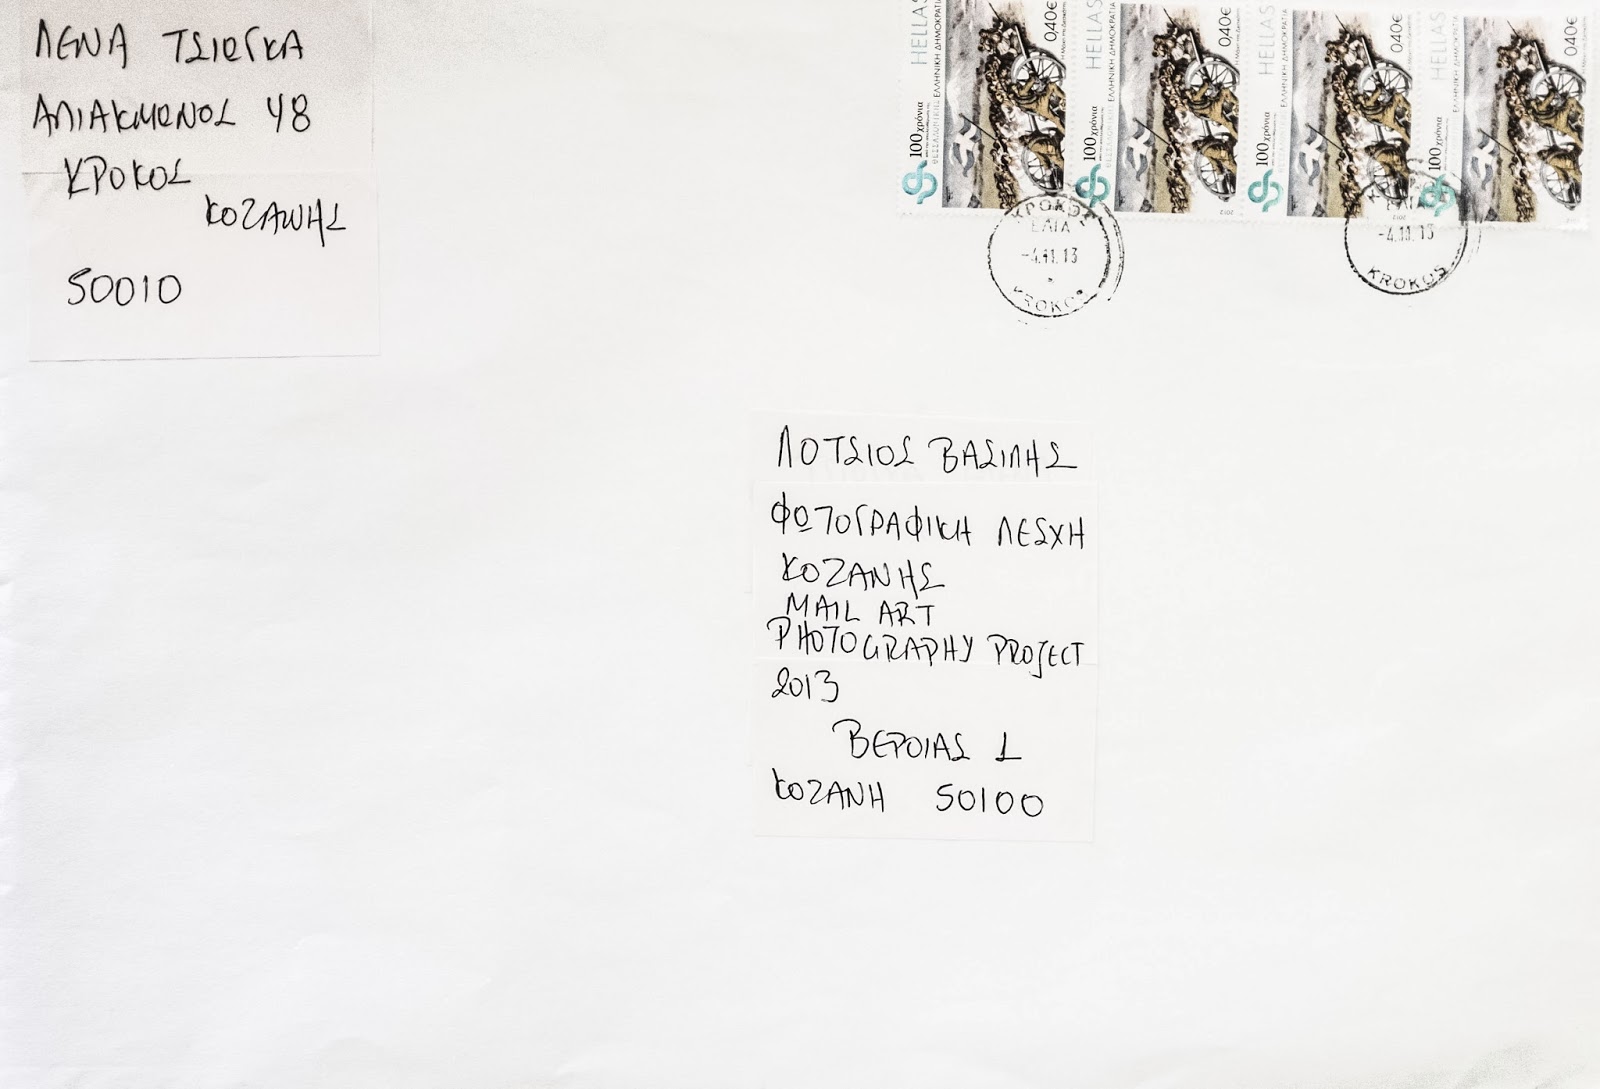 ΛΕΝΑ ΤΣΙΩΓΚΑ
ΑΛΙΑΚΜΩΝΟΣ 48
ΚΡΟΚΟΣ
ΚΟΖΑΝΗΣ
50010
HELLAS
ΕΛΛΗΝΙΚΗ ΔΗΜΟΚΡΑΤΙΑ
0,40€
100 χρόνια
2012
HELLAS
ΕΛΛΗΝΙΚΗ ΔΗΜΟΚΡΑΤΙΑ
0,40€
100 χρόνια
2012
HELLAS
ΕΛΛΗΝΙΚΗ ΔΗΜΟΚΡΑΤΙΑ
0,40€
100 χρόνια
2012
HELLAS
ΕΛΛΗΝΙΚΗ ΔΗΜΟΚΡΑΤΙΑ
0,40€
100 χρόνια
2012
ΚΡΟΚΟΣ
ΕΛΤΑ
-4.11.13
KROKOS
-4.11.13
KROKOS
ΛΟΤΣΙΟΣ ΒΑΣΙΛΗΣ
ΦΩΤΟΓΡΑΦΙΚΗ ΛΕΣΧΗ
ΚΟΖΑΝΗΣ
MAIL ART
PHOTOGRAPHY PROJECT
2013
ΒΕΡΟΙΑΣ 1
ΚΟΖΑΝΗ 50100